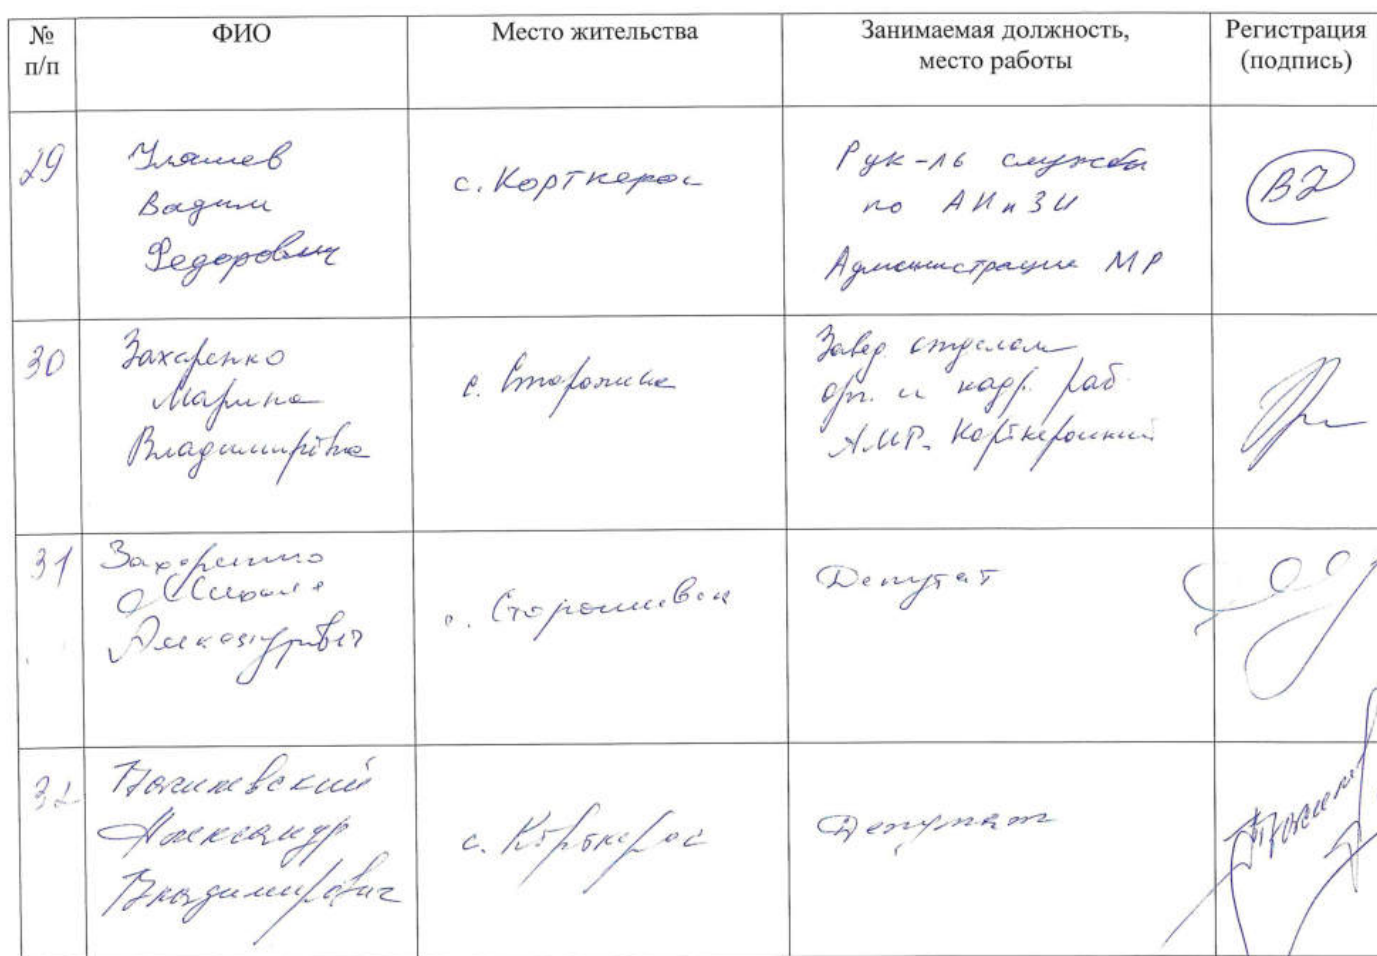 № п/п ФИО Место жительства Занимаемая должность, место работы Регистрация (подпись)
29
Уляшев
Вадим
Федорович
с. Корткерос
Рук-ль службы
по АИиЗИ
Администрации МР
30
Захаренко
Марина
Владимировна
с.
Завед. отделом
орг. и кадр. раб.
АМР. Корткеросский
31
Захаренко
Александрович
с. Сторожевск
Депутат
32
Александр
Владимирович
с. Корткерос
Депутат